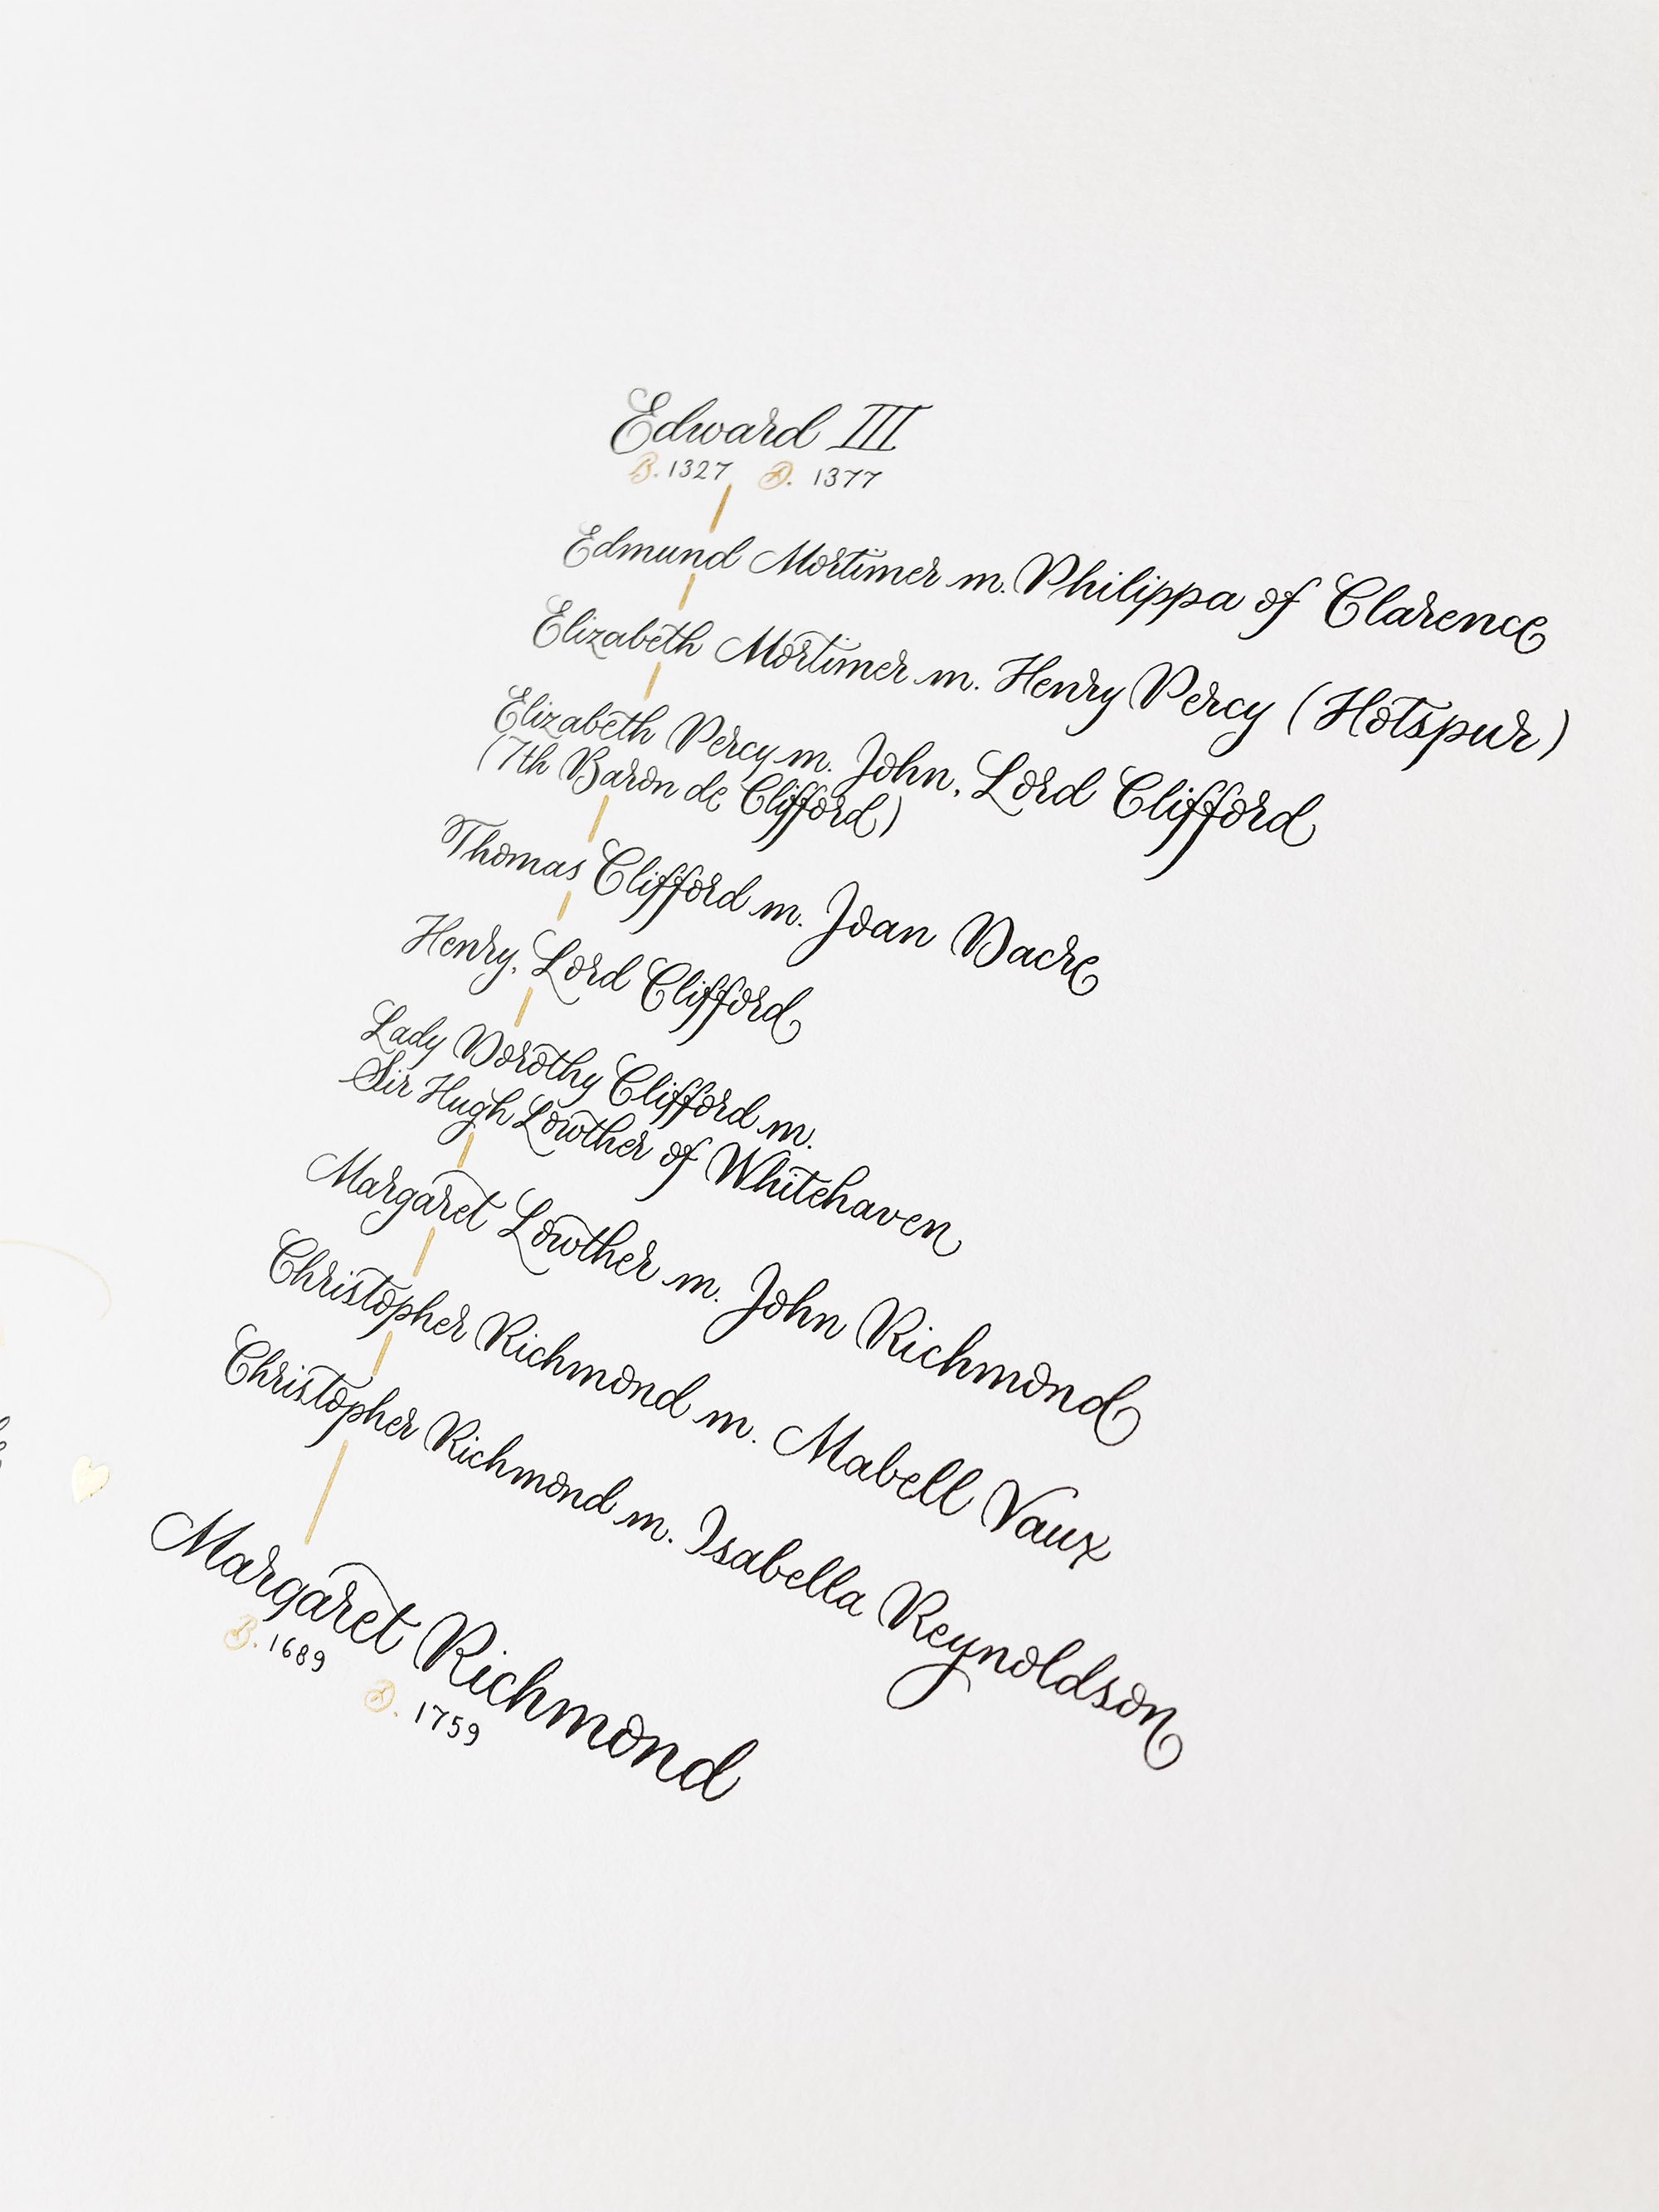 Edward III
B. 1327 D. 1377
Edmund Mortimer m. Philippa of Clarence
Elizabeth Mortimer m. Henry Percy (Hotspur)
Elizabeth Percy m. John, Lord Clifford
(7th Baron de Clifford)
Thomas Clifford m. Joan Dacre
Henry, Lord Clifford
Lady Dorothy Clifford m.
Sir Hugh Lowther of Whitehaven
Margaret Lowther m. John Richmond
Christopher Richmond m. Mabell Vaux
Christopher Richmond m. Isabella Reynoldson
Margaret Richmond
B. 1689 D. 1759